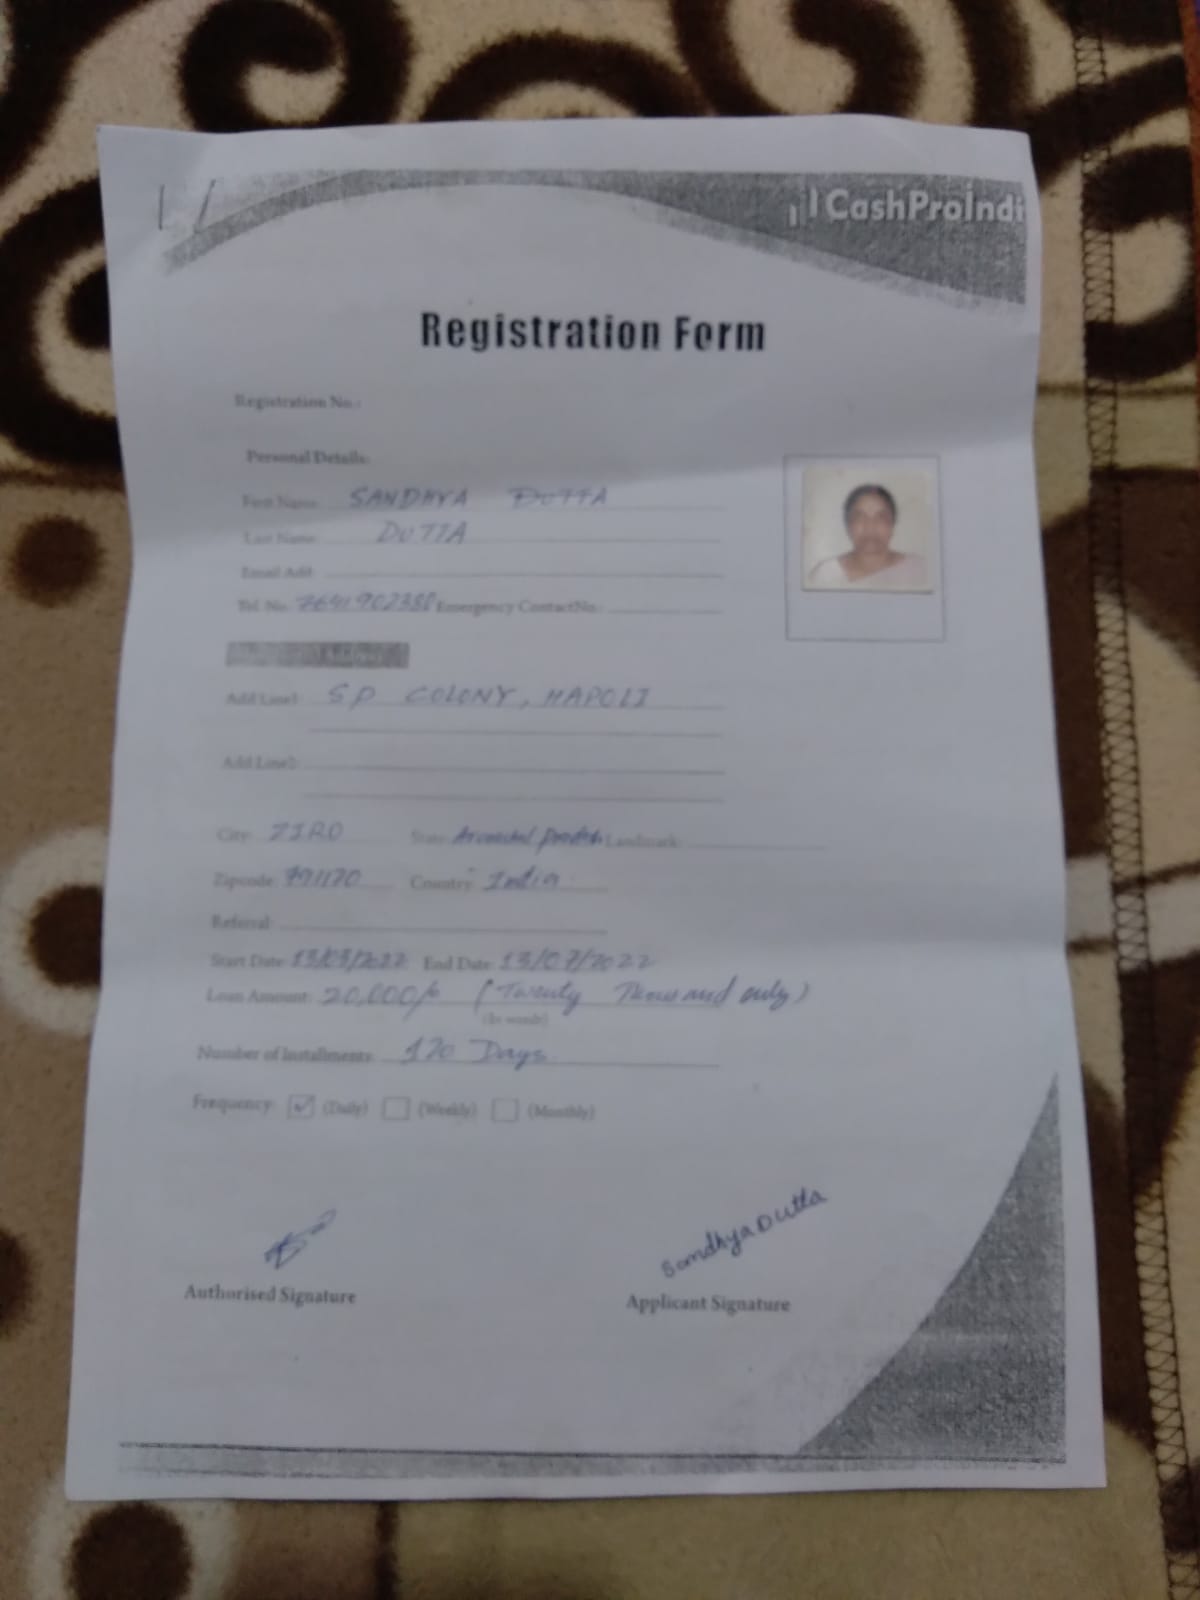 CashProIndi
Registration Form
Registration No.:
Personal Details:
First Name: SANDHYA DUTTA
Last Name: DUTTA
Email Add:
Tel. No. Emergency ContactNo.:
Add Line1: SP COLONY, HAPOLI
Add Line2:
City: ZIRO State: Arunachal Pradesh Landmark:
Zipcode: 791120 Country: India
Referral:
Start Date: 13/03/2022 End Date: 13/07/2022
Loan Amount: 20,000/- (Twenty Thousand only)
(In words)
Number of Installments: 120 Days
Frequency: (Daily) (Weekly) (Monthly)
Sandhya Dutta
Authorised Signature Applicant Signature